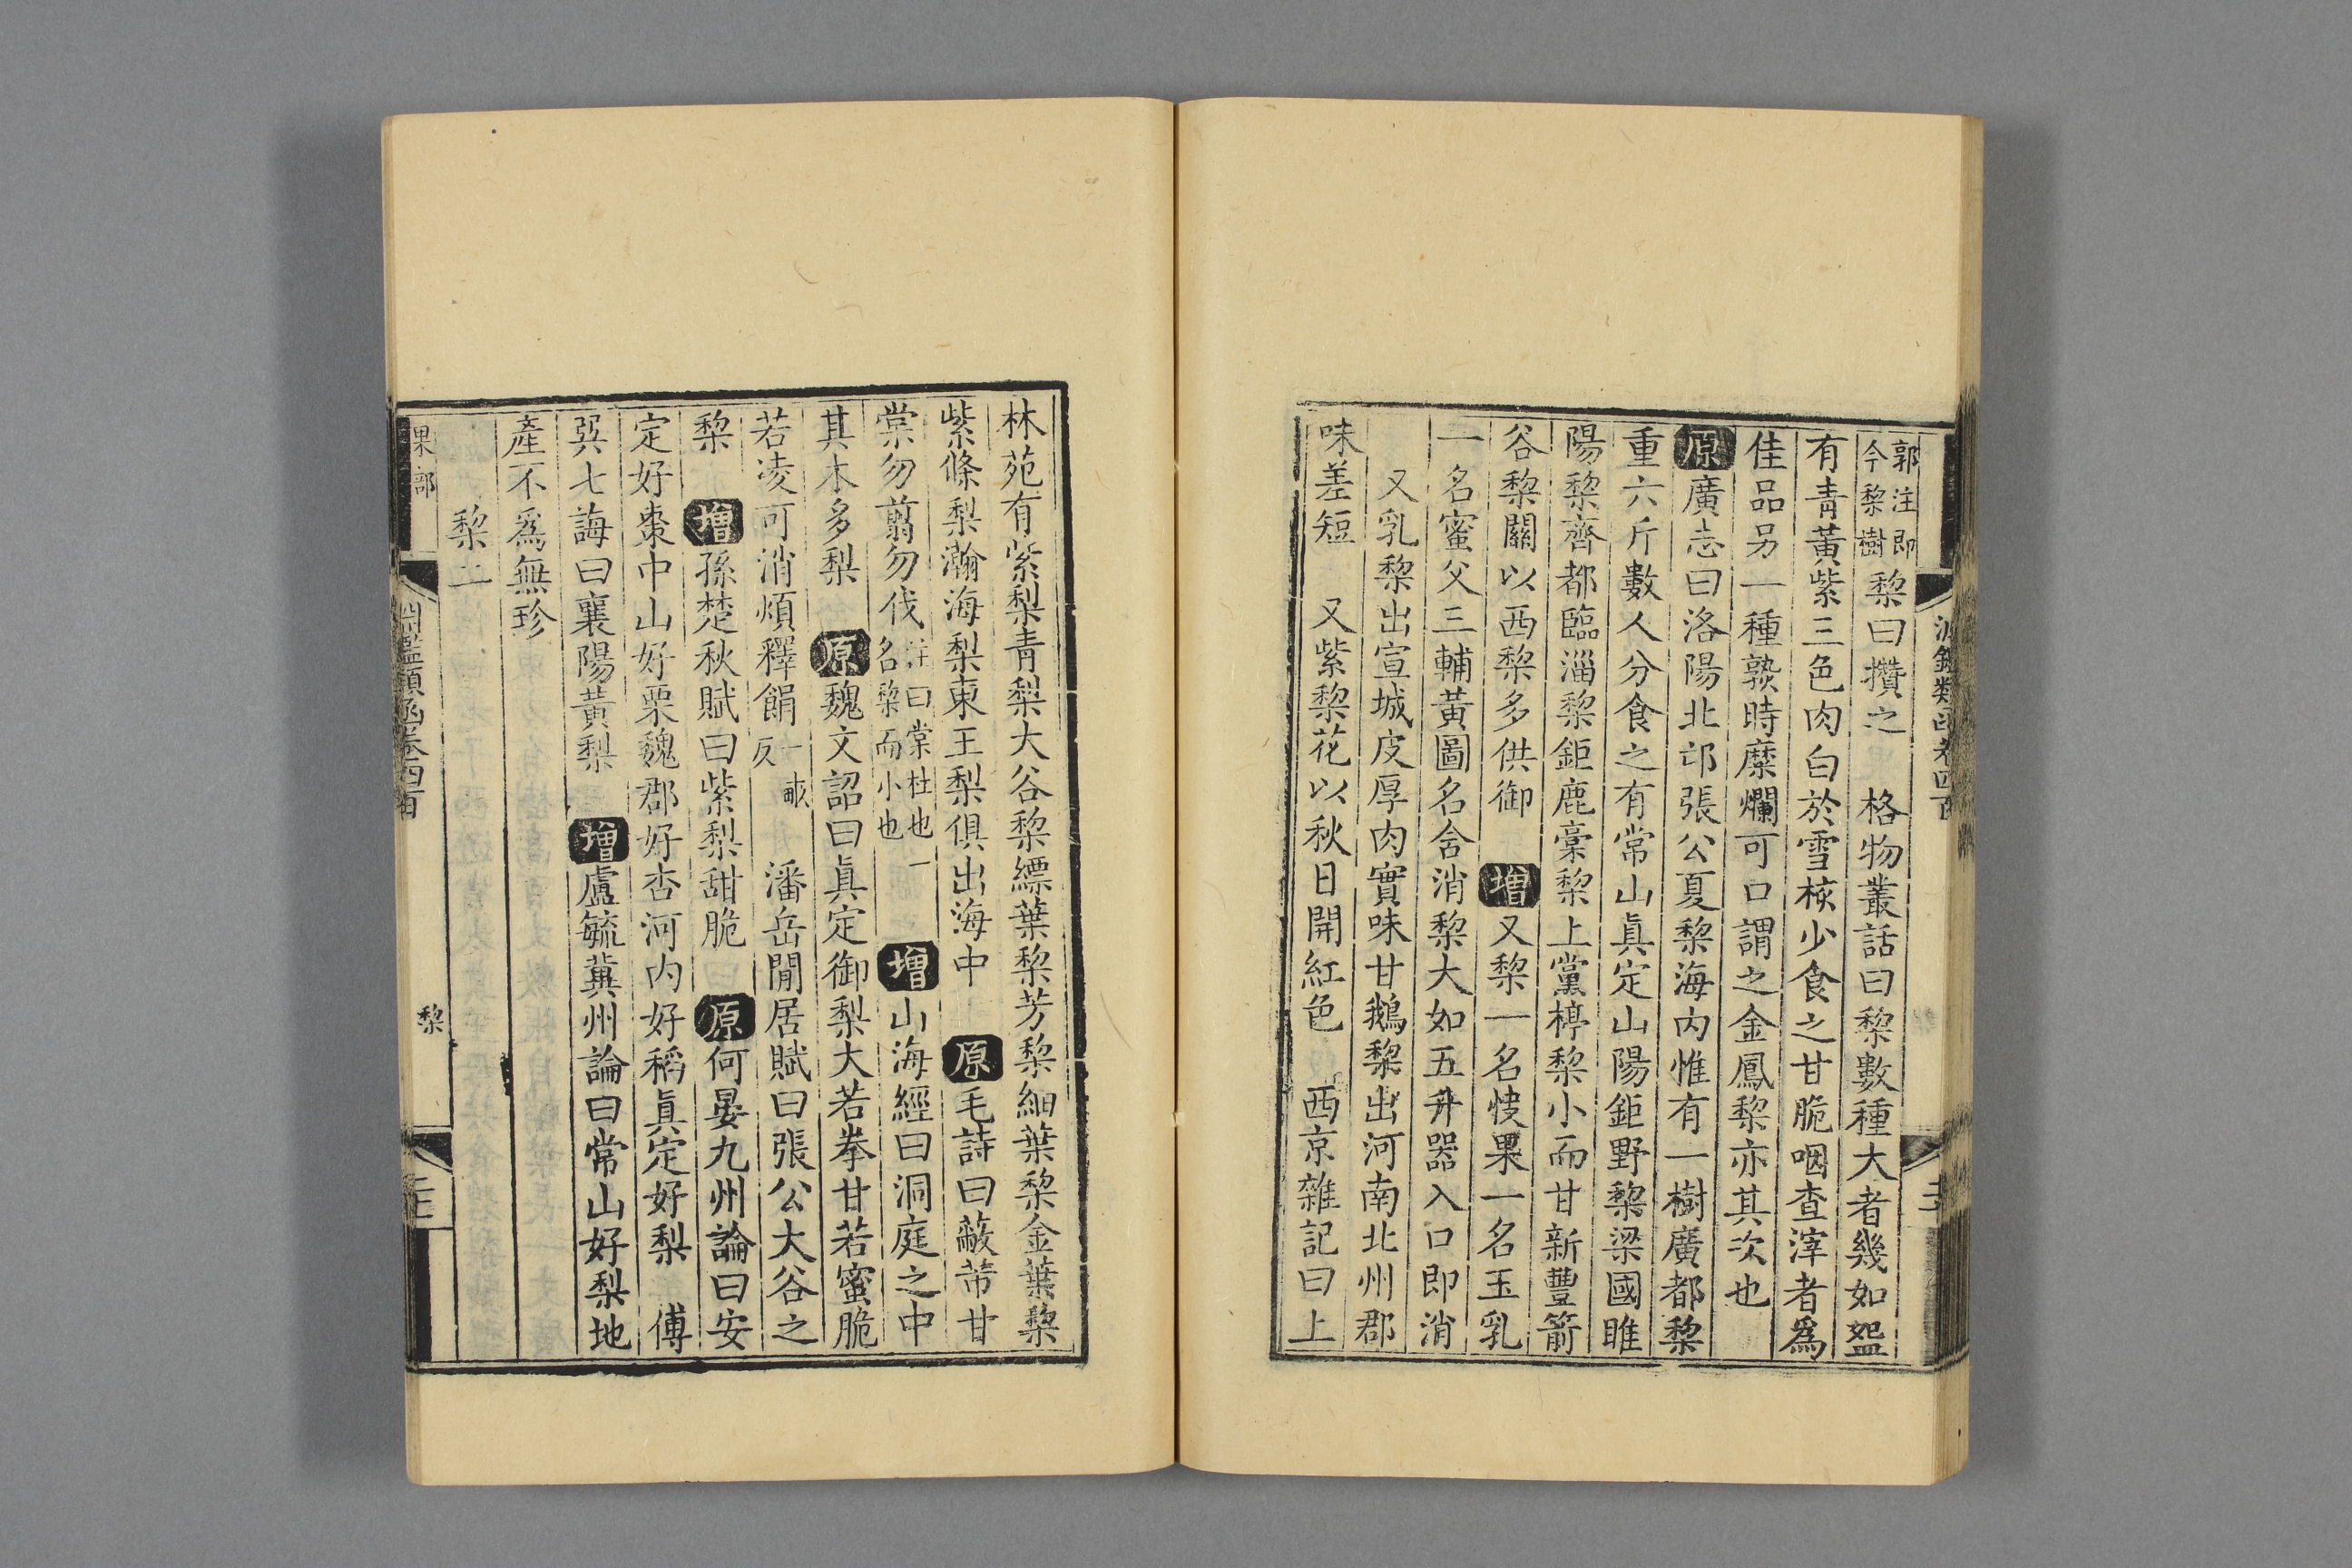 郭注即今黎樹黎曰攢之 格物叢話曰黎數種大者幾如盌
有青黃紫三色肉白於雪核少食之甘脆咽查滓者爲
佳品另一種熟時糜爛可口謂之金鳳黎亦其次也
原廣志曰洛陽北邙張公夏黎海內惟有一樹廣都黎
重六斤數人分食之有常山眞定山陽鉅野黎梁國睢
陽黎齊都臨淄黎鉅鹿稾黎上黨楟黎小而甘新豐箭
谷黎關以西黎多供御 增又黎一名快果一名玉乳
一名蜜父三輔黃圖名含消黎大如五升器入口即消
又乳黎出宣城皮厚肉實味甘鵝黎出河南北州郡
味差短 又紫黎花以秋日開紅色 西京雜記曰上
林苑有紫梨青梨大谷黎縹葉黎芳黎細葉黎金葉黎
紫條梨瀚海梨東王梨俱出海中 原毛詩曰蔽芾甘
棠勿翦勿伐注曰棠杜也一名黎而小也 增山海經曰洞庭之中
其木多梨 原魏文詔曰眞定御梨大若拳甘若蜜脆
若凌可消煩釋餶 潘岳閒居賦曰張公大谷之
黎 增孫楚秋賦曰紫梨甜脆 原何晏九州論曰安
定好棗中山好栗魏郡好杏河內好稻眞定好梨 傅
巽七誨曰襄陽黃梨 增盧毓冀州論曰常山好梨地
產不爲無珍
黎二
果部 淵鑑類函卷四百 黎